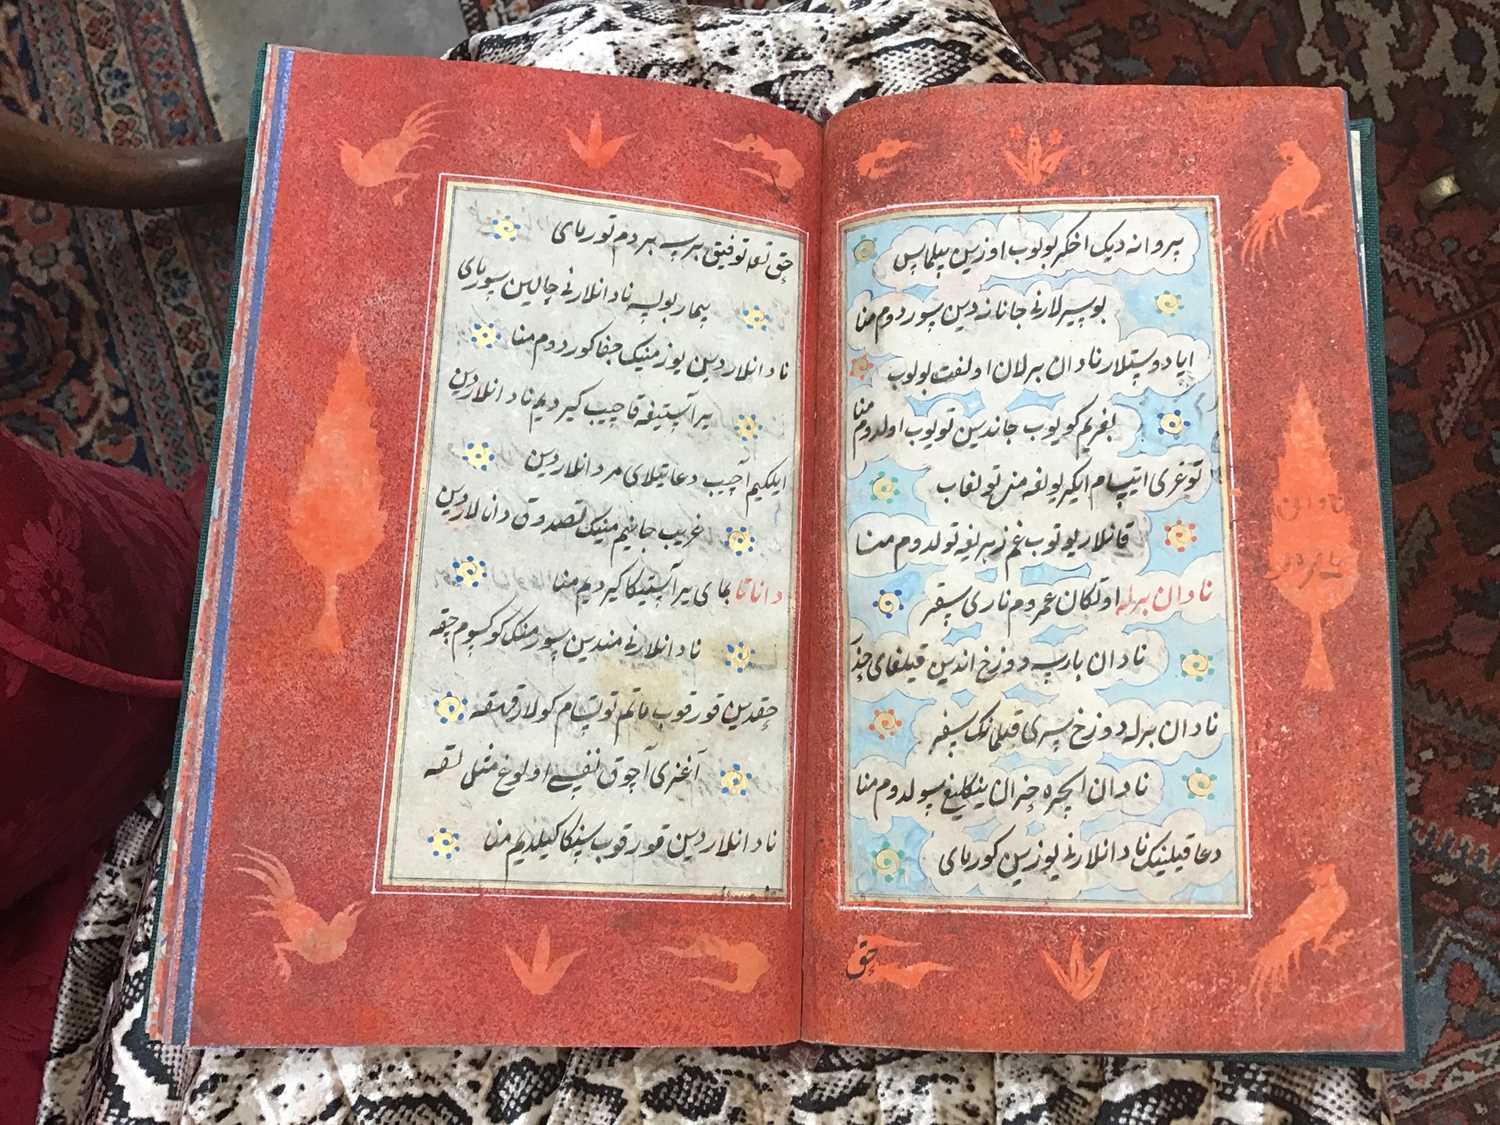 پروانه دیک اخکر بولوب اوزین بیلماس
بو سیرلارنی جانانه دین سوردوم منا
ایا دوستلار نادان برلان اولفت بولوب
بغریم کویوب جاندین تویوب اولدوم منا
توغری ایتسام ایکری یولغه منع تولغاب
قانلار یوتوب غم زهریغه تولدوم منا
نادان برله اوتکان عمروم ناری سقر
نادان بارسه دوزخ اندین قیلغای حذر
نادان برله دوزخ سری قیلمانک سفر
نادان ایچره خزان ینکلیغ سولدوم منا
دعا قیلینک نادانلارنی یوزین کورمای
حق
حق تعا توفیق بیرسه بیردم تورمای
بیمار بولسه نادانلارنی حالین سورمای
نادانلاردین یوز مینک جفا کوردوم منا
یرآستیغه قاچیب کیردیم نادانلاردین
ایلکیم آچیب دعا تیلای مردانلاردین
غریب جانیم مینک تصدوق دانالاردین
دانا تابمای یرآستیکا کیردیم منا
نادانلارنی مندین سورمنک کوکسوم چقه
حقدین قورقوب ماتم توتسام کولار قهقه
آغزی آچوق نفسی اولوغ مثل لقه
نادانلاردین قورقوب سیزکا کیلدیم منا